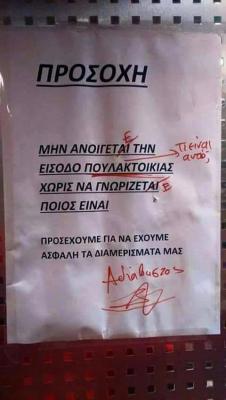 ΠΡΟΣΟΧΗ
ΜΗΝ ΑΝΟΙΓΕΤΑΙ ΤΗΝ
Ε
Τι είναι αυτό;
ΕΙΣΟΔΟ ΠΟΥΛΑΚΤΟΙΚΙΑΣ
ΧΩΡΙΣ ΝΑ ΓΝΩΡΙΖΕΤΑΙ
Ε
ΠΟΙΟΣ ΕΙΝΑΙ
ΠΡΟΣΕΧΟΥΜΕ ΓΙΑ ΝΑ ΕΧΟΥΜΕ
ΑΣΦΑΛΗ ΤΑ ΔΙΑΜΕΡΙΣΜΑΤΑ ΜΑΣ
Αδιάβαστος